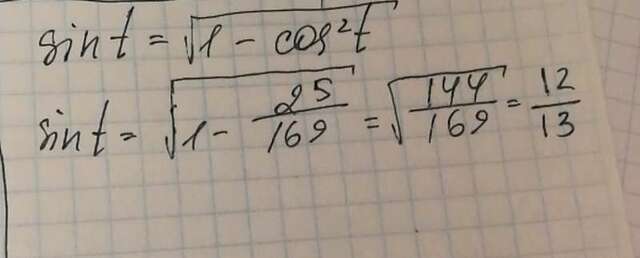 sin t = √1 - cos²t
sin t = √1 - 25/169 = √144/169 = 12/13